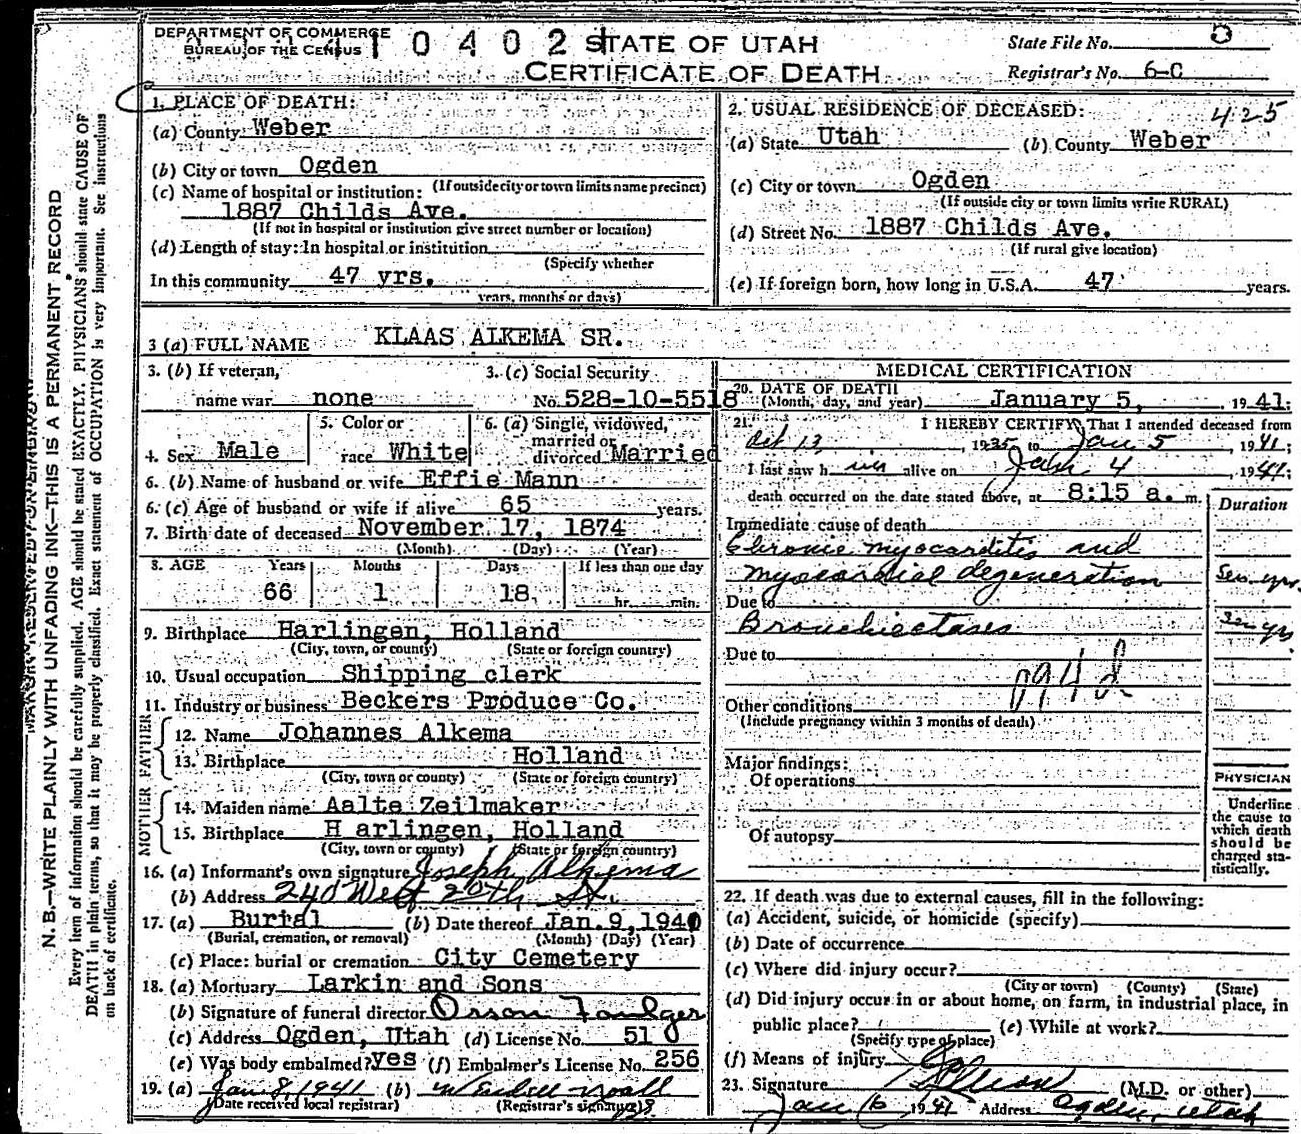 DEPARTMENT OF COMMERCE
BUREAU OF THE CENSUS
10402
STATE OF UTAH
CERTIFICATE OF DEATH
State File No. 8
Registrar's No. 6-C
1. PLACE OF DEATH:
(a) County Weber
(b) City or town Ogden
(If outside city or town limits name precinct)
(c) Name of hospital or institution:
1887 Childs Ave.
(If not in hospital or institution give street number or location)
(d) Length of stay: In hospital or institution
(Specify whether
In this community 47 yrs.
years, months or days)
2. USUAL RESIDENCE OF DECEASED: 425
(a) State Utah (b) County Weber
(c) City or town Ogden
(If outside city or town limits write RURAL)
(d) Street No. 1887 Childs Ave.
(If rural give location)
(e) If foreign born, how long in U.S.A. 47 years.
3 (a) FULL NAME KLAAS ALKEMA SR.
3. (b) If veteran, name war none
3. (c) Social Security No. 528-10-5518
4. Sex Male
5. Color or race White
6. (a) Single, widowed, married or divorced Married
6. (b) Name of husband or wife Effie Mann
6. (c) Age of husband or wife if alive 65 years.
7. Birth date of deceased November 17, 1874
(Month) (Day) (Year)
8. AGE Years Months Days If less than one day
66 1 18 hr. min.
9. Birthplace Harlingen, Holland
(City, town, or county) (State or foreign country)
10. Usual occupation Shipping clerk
11. Industry or business Beckers Produce Co.
FATHER
12. Name Johannes Alkema
13. Birthplace Holland
(City, town or county) (State or foreign country)
MOTHER
14. Maiden name Aalte Zeilmaker
15. Birthplace H arlingen, Holland
(City, town or county) (State or foreign country)
16. (a) Informant's own signature Joseph Alkema
(b) Address 240 West 20th St.
17. (a) Burial (b) Date thereof Jan. 9, 1941
(Burial, cremation, or removal) (Month) (Day) (Year)
(c) Place: burial or cremation City Cemetery
18. (a) Mortuary Larkin and Sons
(b) Signature of funeral director Orson Foulger
(c) Address Ogden, Utah (d) License No. 510
(e) Was body embalmed? yes (f) Embalmer's License No. 256
19. (a) Jan. 8, 1941 (b)
(Date received local registrar) (Registrar's signature)
MEDICAL CERTIFICATION
20. DATE OF DEATH
(Month, day, and year) January 5, 1941;
21. I HEREBY CERTIFY, That I attended deceased from
Oct 13 1935 to Jan 5, 1941;
I last saw h im alive on Jan 4 1941;
death occurred on the date stated above, at 8:15 a. m.
Duration
Immediate cause of death
Chronic myocarditis and
myocardial degeneration Sev. yrs.
Due to
Bronchiectases yrs.
Due to
94d
Other conditions
(Include pregnancy within 3 months of death)
Major findings:
Of operations
Of autopsy
PHYSICIAN
Underline the cause to which death should be charged statistically.
22. If death was due to external causes, fill in the following:
(a) Accident, suicide, or homicide (specify)
(b) Date of occurrence
(c) Where did injury occur?
(City or town) (County) (State)
(d) Did injury occur in or about home, on farm, in industrial place, in
public place? (e) While at work?
(Specify type of place)
(f) Means of injury
23. Signature (M.D. or other)
Jan 6 1941 Address Ogden, Utah
N. B.—WRITE PLAINLY WITH UNFADING INK—THIS IS A PERMANENT RECORD
Every item of information should be carefully supplied. AGE should be stated EXACTLY. PHYSICIANS should state CAUSE OF
DEATH in plain terms, so that it may be properly classified. Exact statement of OCCUPATION is very important. See instructions
on back of certificate.